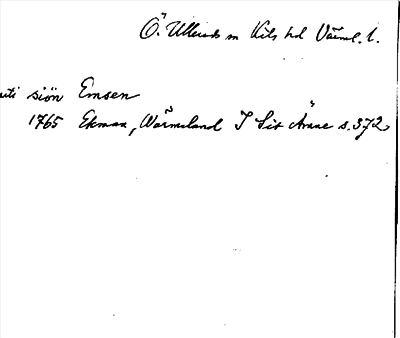 Ö. Ullerud sn Kils hd Värml. l.
siön Emsen
1765 Ekman, Wärmeland I Sit Ämne s. 372